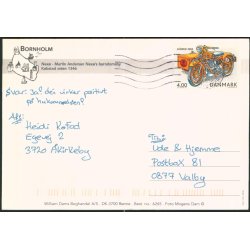 BORNHOLM
Nexø - Martin Andersen Nexø's barndomsby
Købstad siden 1346
4.00 DANMARK
Svar: Ja! det virker positivt
på hukommelsen!
Afs:
Heidi Kofod
Egevej 2
3720 Åkirkeby
Til:
Ude & Hjemme
Postbox 81
0877 Valby
William Dams Boghandel A/S · DK-3700 Rønne
Foto Mogens Dam